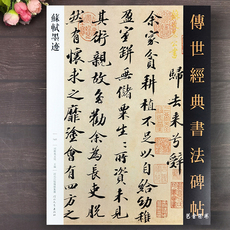 傳世經典書法碑帖
歸去來兮辭
余家貧耕植不足以自給幼稚
盈室缾無儲粟生生所資未見
其術親故多勸余為長吏脫
然有懷求之靡塗會有四方之
蘇軾墨迹